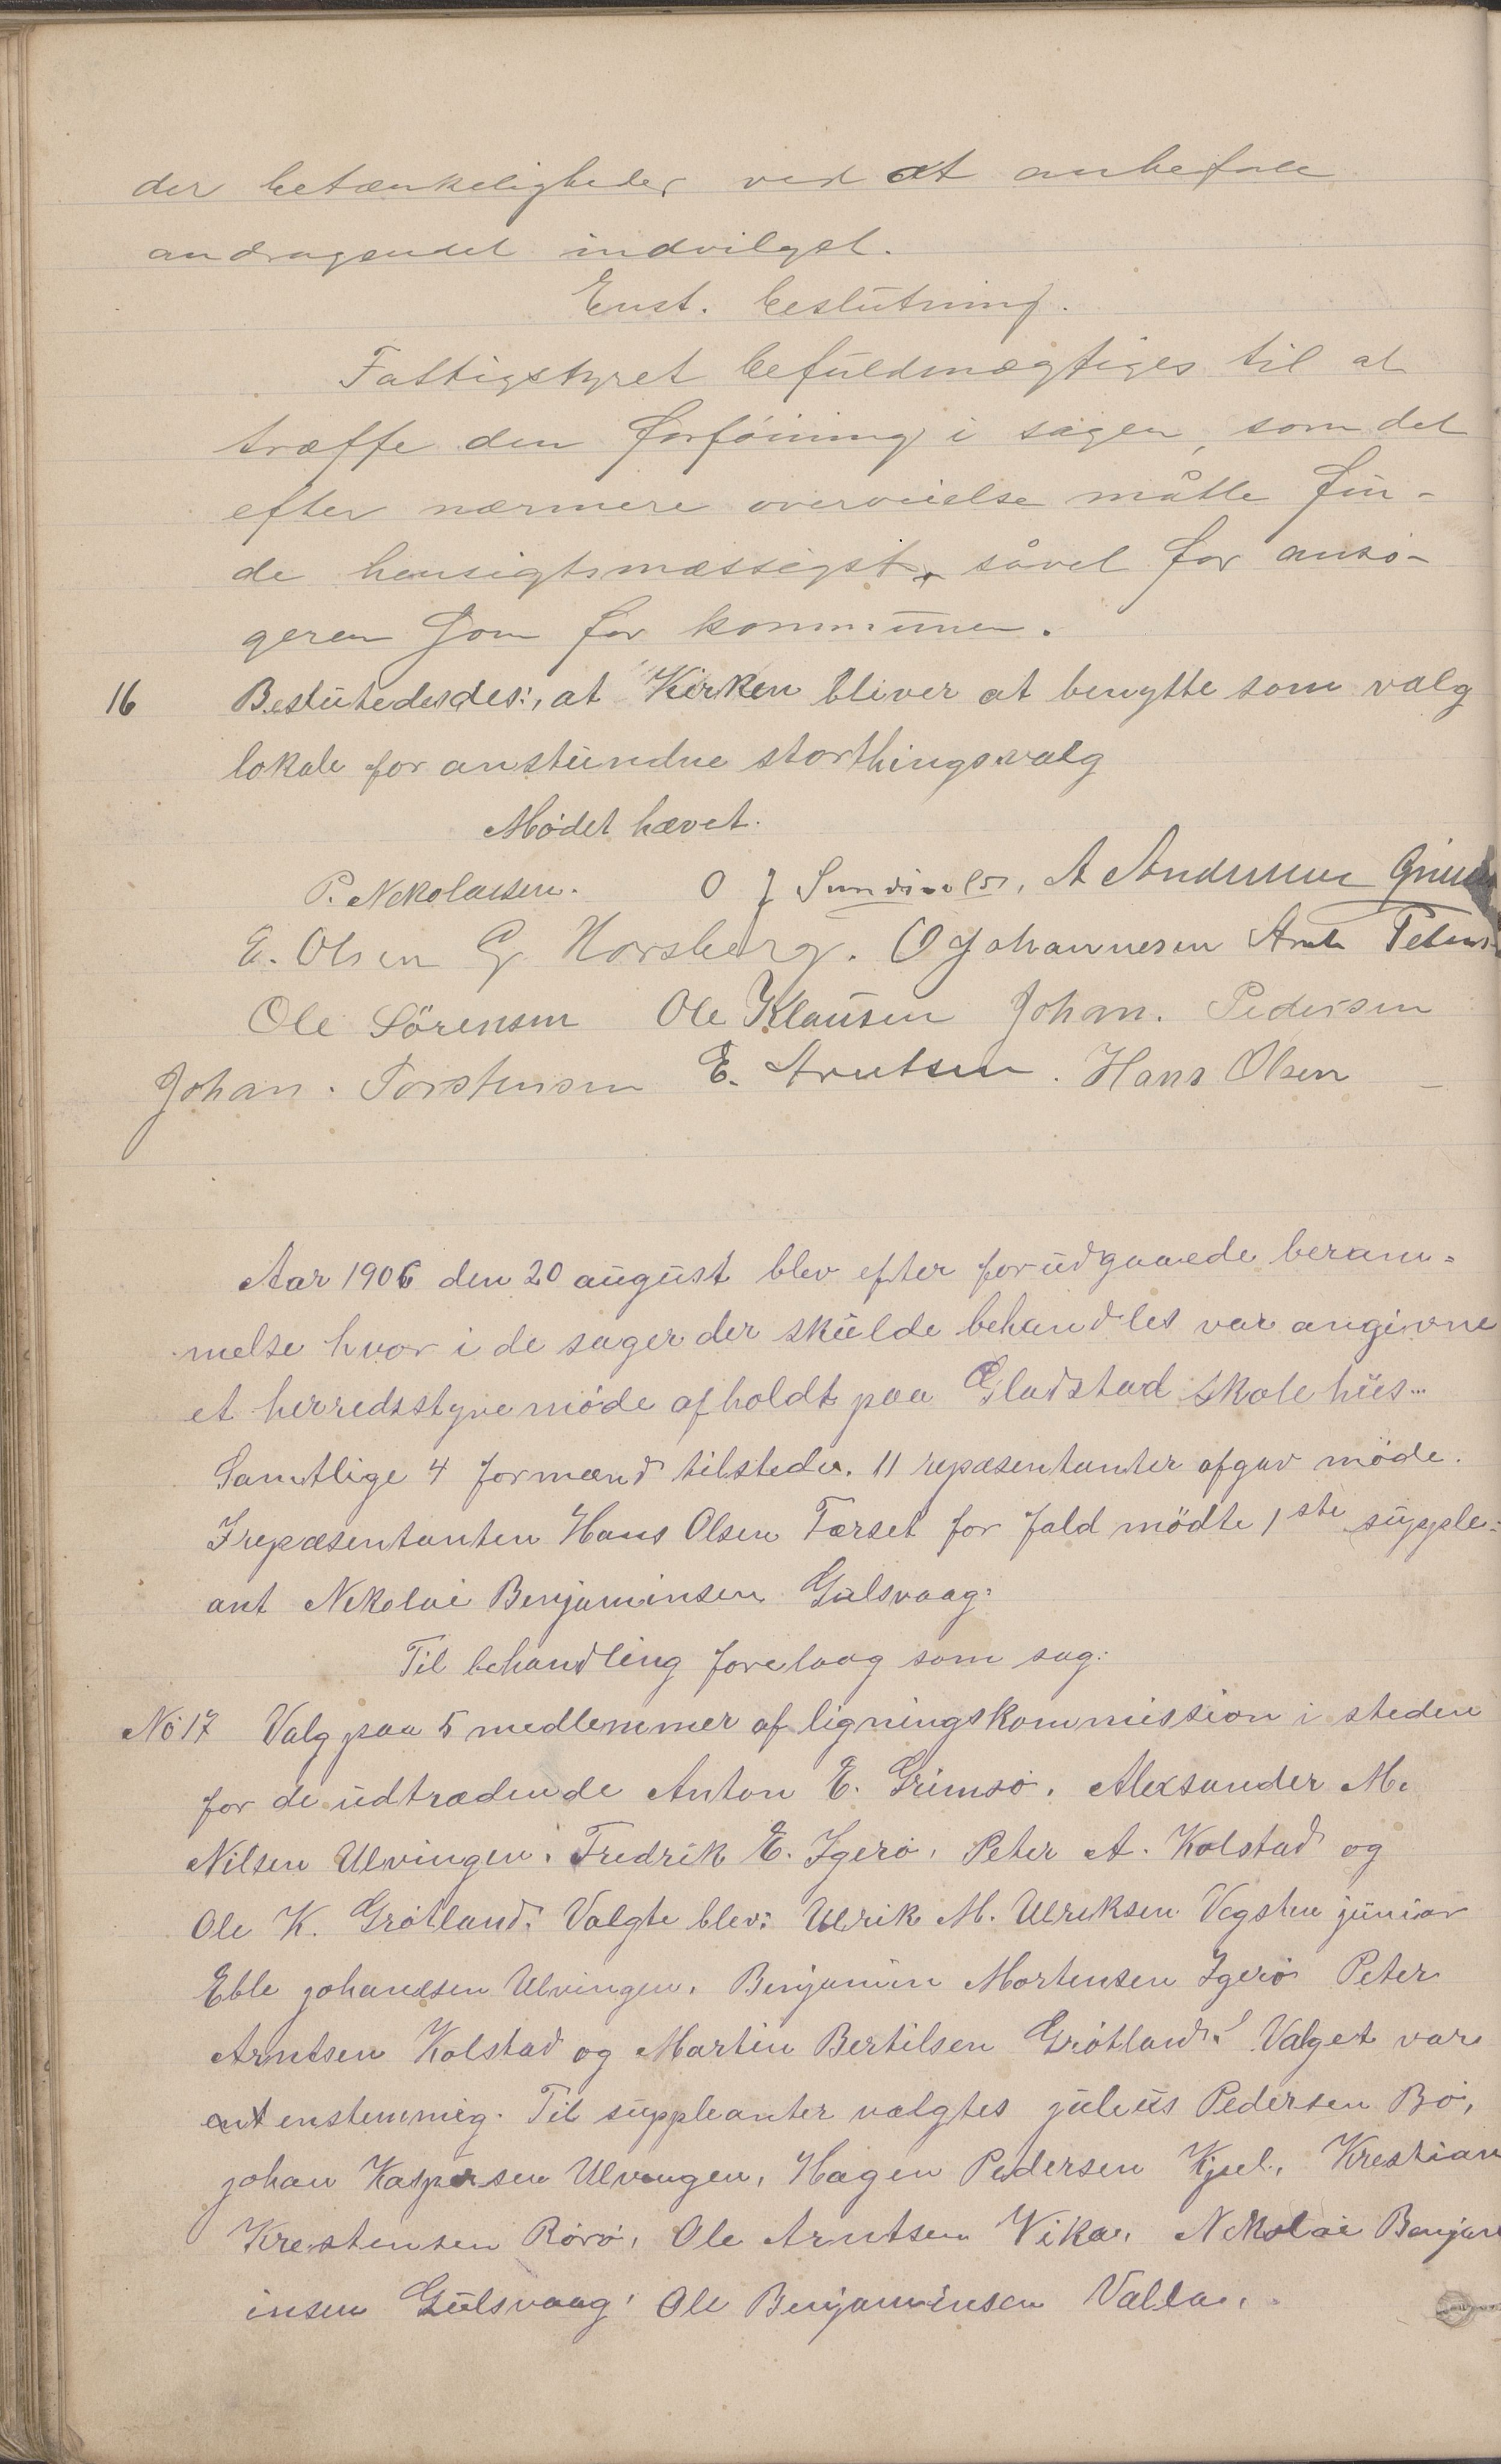 der betænkeligheder ved at anbefale
andragendet indvilget.
Enst. beslutning.
Fattigstyret befuldmægtiges til at
træffe den forföining i sagen, som det
efter nærmere overveielse måtte fin-
de hensigtsmæssigst, såvel for ansö-
geren som for kommunen.
16 Beslutedesdes:, at Kirken bliver at benytte som valg
lokale for anstundne storthingsvalg
Mödet hævet.
P. Nekolaisen. O J A Andersen
E. Olsen G. Horsberg. O Johannesen Arnt
Ole Sörensen Ole Klausen Johan. Pedersen
Johan. Torstensen E. Arntsen. Hans Olsen
Aar 1906 den 20 august blev efter forudgaaede beram=
melse hvor i de sager der skulde behandles var angivne
et herredsstyremöde afholdt paa Gladstad skolehus...
Samtlige 4 formænd tilstede. 11 repæsentanter afgav möde.
I repæsentanten Hans Olsen Tærset for fald mödte 1ste supple=
ant Nekolai Benjaminsen Gulsvaag.
Til behandling forelaag som sag:
No 17 Valg paa 5 medlemmer af ligningskommission i steden
for de udtrædende Anton E. Grimsö. Aleksander M.
Nilsen Ulvingen. Fredrik E. Igerö. Peter A. Kolstad og
Ole K. Grötland. Valgte blev: Ulrik M. Ulreksen Vegsten junior
Eble johansen Ulvingen. Benjamin Mortensen Igerö Peter
Arntsen Kolstad og Martin Bertilsen Grötland. Valget var
ent enstemmig. Til suppleanter valgtes julius Pedersen Bö,
johan Kaspersen Ulvingen, Hagen Pedersen Kjul. Krestian
Krestensen Rörö, Ole Arntsen Vika. Nekolai Benjam
insen Gulsvaag. Ole Benjaminsen Valla.